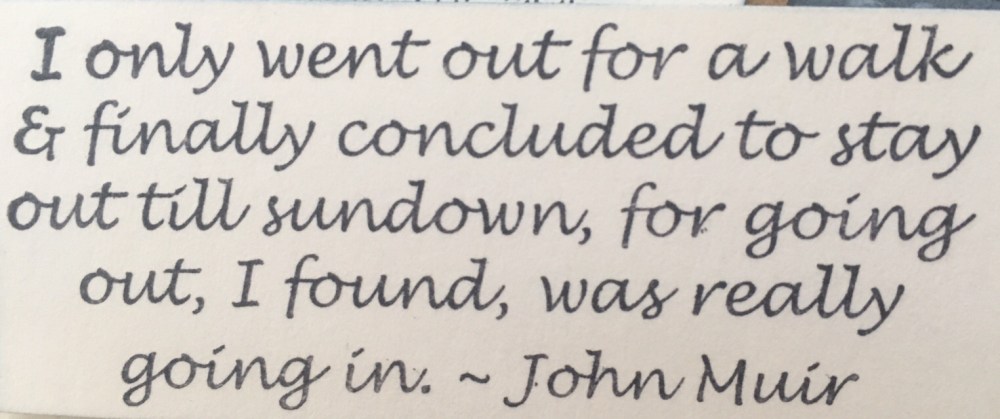 I only went out for a walk
& finally concluded to stay
out till sundown, for going
out, I found, was really
going in. ~ John Muir